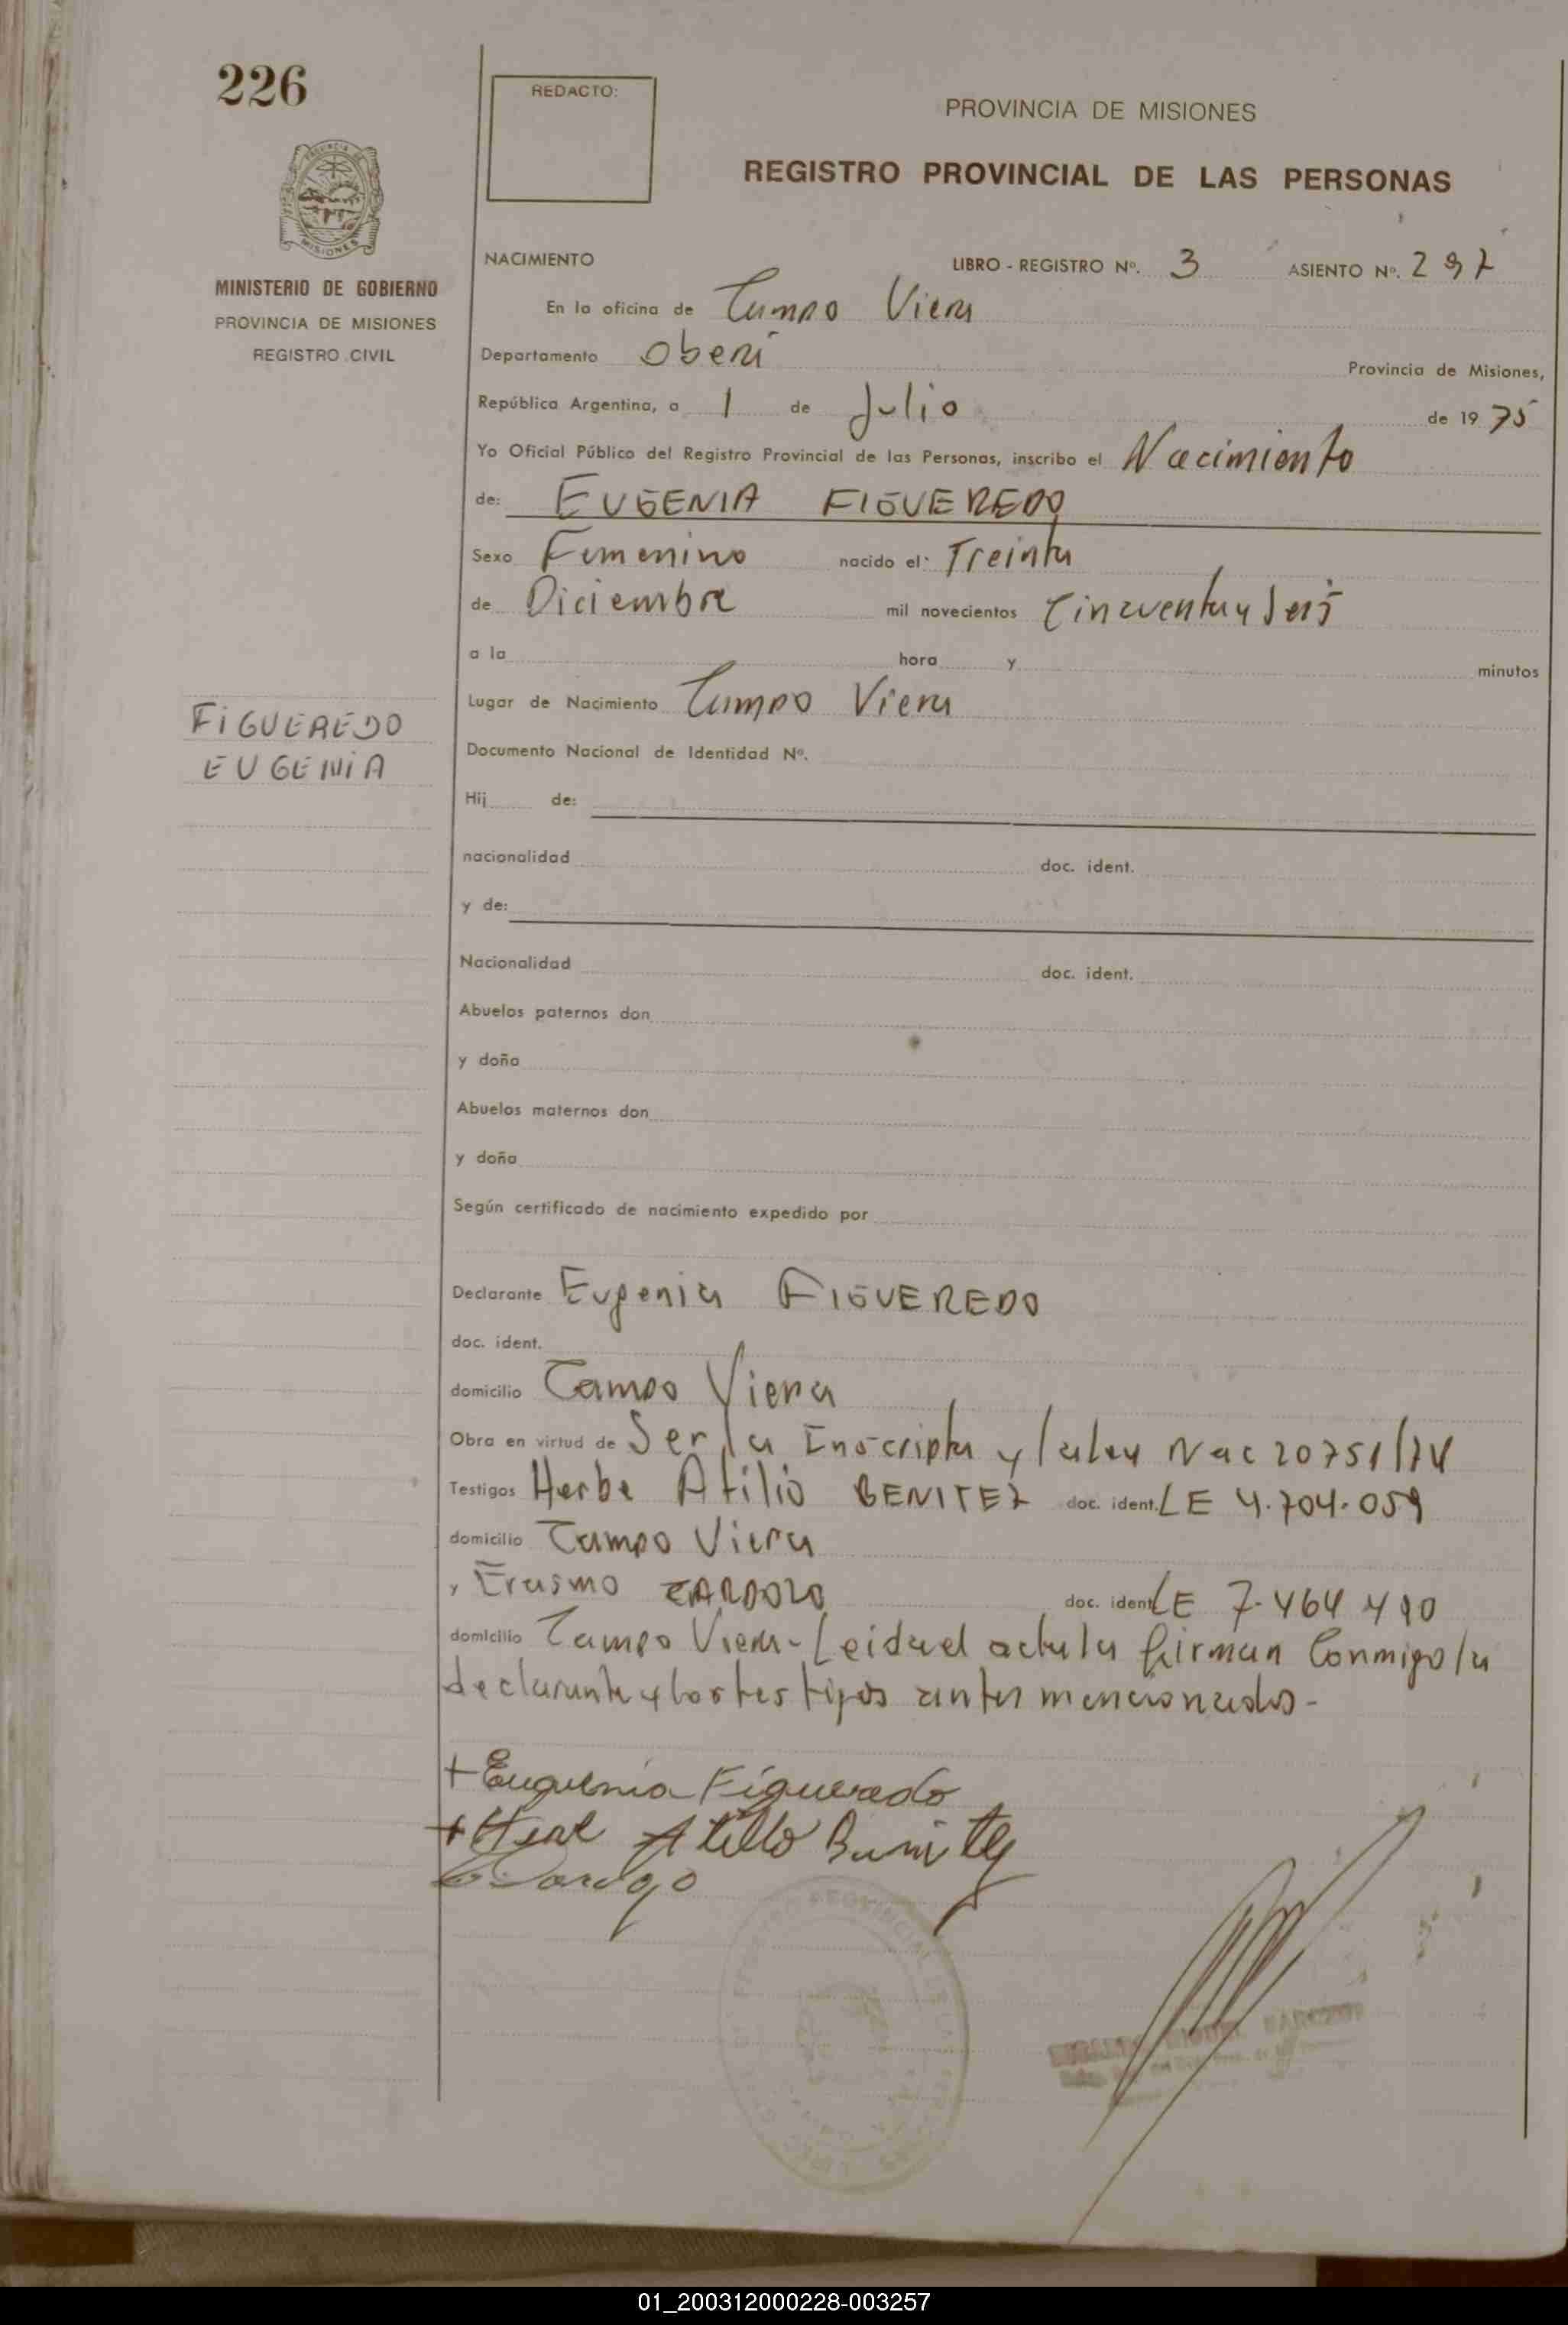 226
REDACTO:
PROVINCIA DE MISIONES
REGISTRO PROVINCIAL DE LAS PERSONAS
MISIONES
MINISTERIO DE GOBIERNO
PROVINCIA DE MISIONES
REGISTRO CIVIL
NACIMIENTO LIBRO - REGISTRO Nº. 3 ASIENTO Nº. 297
En la oficina de Campo Viera
Departamento Oberá Provincia de Misiones,
República Argentina, a 1 de Julio de 19 75
Yo Oficial Público del Registro Provincial de las Personas, inscribo el Nacimiento
de: EUGENIA FIGUEREDO
Sexo Femenino nacido el: Treinta
de Diciembre mil novecientos Cincuenta y Seis
a la hora y minutos
Lugar de Nacimiento Campo Viera
FIGUEREDO
EUGENIA
Documento Nacional de Identidad Nº.
Hij de:
nacionalidad doc. ident.
y de:
Nacionalidad doc. ident.
Abuelos paternos don
y doña
Abuelos maternos don
y doña
Según certificado de nacimiento expedido por
Declarante Eugenia FIGUEREDO
doc. ident.
domicilio Campo Viera
Obra en virtud de Ser la Inscripta y la ley Nac 20751/74
Testigos Herbe Atilio BENITEZ doc. ident. LE 4.704.059
domicilio Campo Viera
y Erasmo CARDOZO doc. ident LE 7.464 490
domicilio Campo Viera - Leida el acta la firman Conmigo la
declarante y los testigos antes mencionados -
+ Euguenia Figueredo
Atilio Benitez